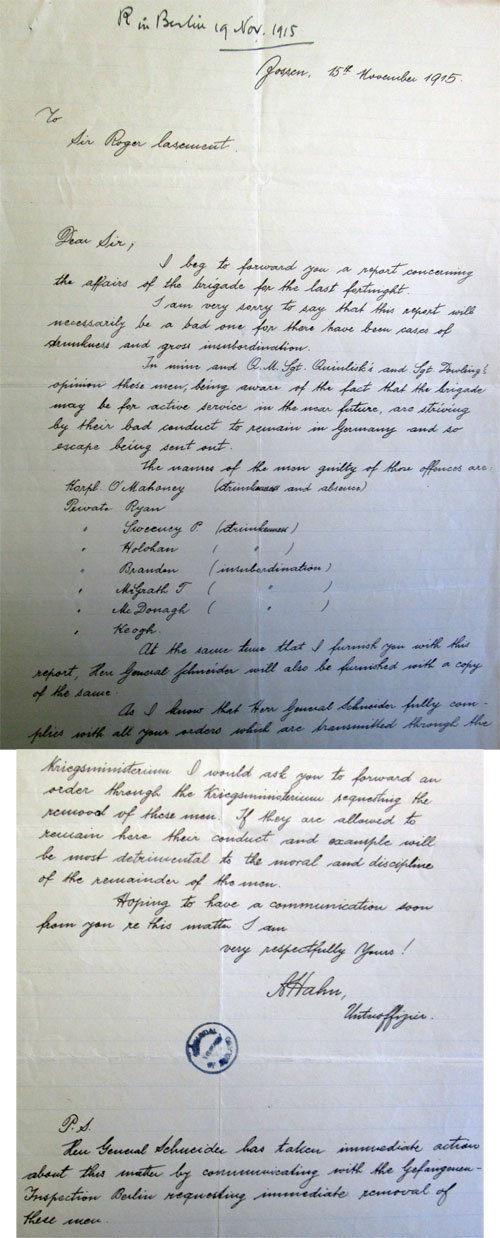 R in Berlin 19 Nov. 1915
Zossen, 15th November 1915.
To
Sir Roger Casement.
Dear Sir,
I beg to forward you a report concerning
the affairs of the brigade for the last fortnight.
I am very sorry to say that this report will
necessarily be a bad one for there have been cases of
drunkness and gross insubordination.
In mine and Q.M. Sgt. Quinlisk's and Sgt Dowling's
opinion these men, being aware of the fact that the brigade
may be for active service in the near future, are striving
by their bad conduct to remain in Germany and so
escape being sent out.
The names of the men guilty of those offences are:
Korpl O'Mahoney (drunkenness and absence)
Private Ryan
" Sweeney P. (drunkenness)
" Holohan ( " )
" Brandon (insubordination)
" McGrath T. ( " )
" McDonagh ( " )
" Keogh.
At the same time that I furnish you with this
report, Herr General Schneider will also be furnished with a copy
of the same.
As I know that Herr General Schneider fully com-
plies with all your orders which are transmitted through the
Kriegsministerium I would ask you to forward an
order through the Kriegsministerium requesting the
removal of these men. If they are allowed to
remain here their conduct and example will
be most detrimental to the moral and discipline
of the remainder of the men.
Hoping to have a communication soon
from you re this matter I am
very respectfully Yours!
A Hahn,
Unteroffizier.
P.S.
Herr General Schneider has taken immediate action
about this matter by communicating with the Gefangenen-
Inspection Berlin requesting immediate removal of
these men.